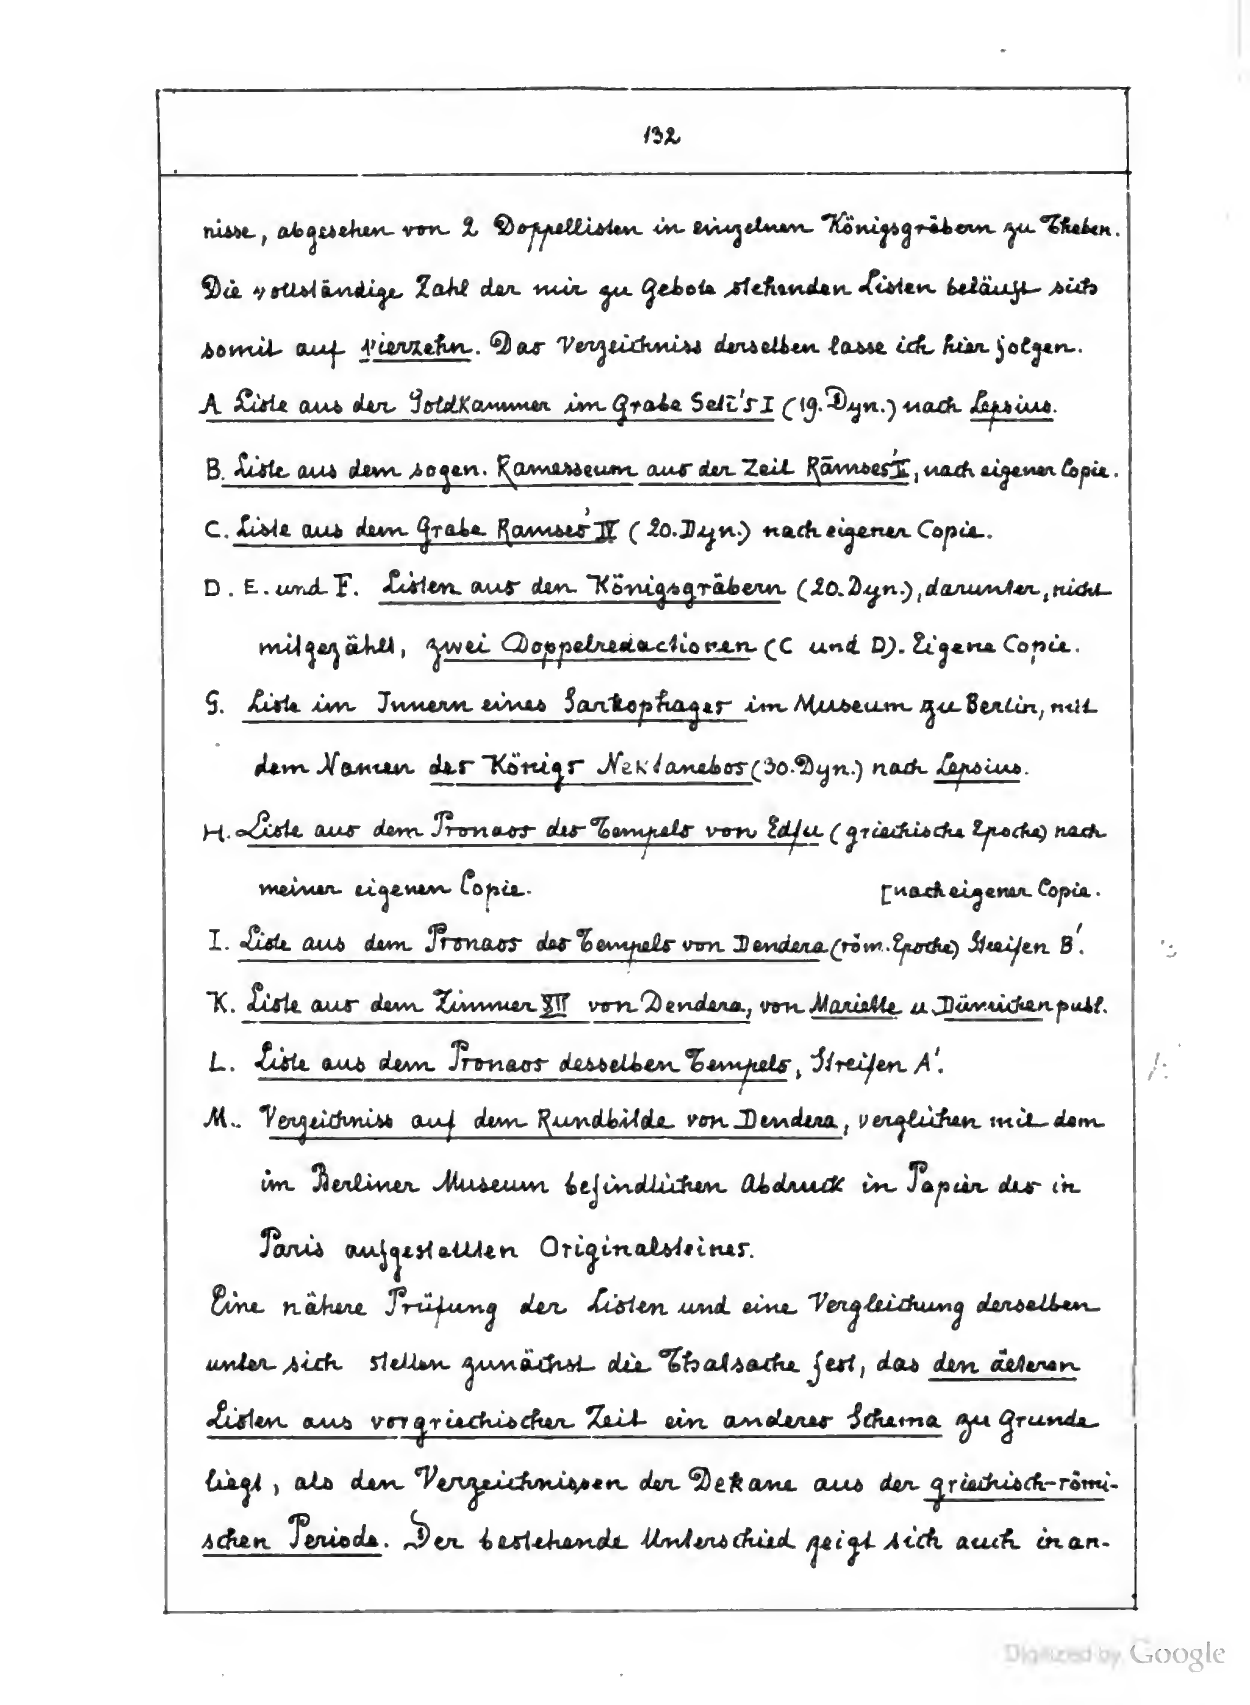 132
nisse, abgesehen von 2 Doppellisten in einzelnen Königsgräbern zu Theben.
Die vollständige Zahl der mir zu Gebote stehenden Listen beläuft sich
somit auf vierzehn. Das Verzeichniss derselben lasse ich hier folgen.
A Liste aus der Goldkammer im Grabe Seti's I (19. Dyn.) nach Lepsius.
B. Liste aus dem sogen. Ramesseum aus der Zeit Ramses' II, nach eigener Copie.
C. Liste aus dem Grabe Ramses' IV (20. Dyn.) nach eigener Copie.
D. E. und F. Listen aus den Königsgräbern (20. Dyn.), darunter, nicht
mitgezählt, zwei Doppelredactionen (C und D). Eigene Copie.
G. Liste im Innern eines Sarkophages im Museum zu Berlin, mit
dem Namen des Königs Nektanebos (30. Dyn.) nach Lepsius.
H. Liste aus dem Pronaos des Tempels von Edfu (griechische Epoche) nach
meiner eigenen Copie. [nach eigener Copie.
I. Liste aus dem Pronaos des Tempels von Dendera (röm. Epoche) Streifen B'.
K. Liste aus dem Zimmer XII von Dendera, von Mariette u. Dümichen publ.
L. Liste aus dem Pronaos desselben Tempels, Streifen A'.
M.. Verzeichniss auf dem Rundbilde von Dendera, verglichen mit dem
im Berliner Museum befindlichen Abdruck in Papier des in
Paris aufgestellten Originalsteines.
Eine nähere Prüfung der Listen und eine Vergleichung derselben
unter sich stellen zunächst die Thatsache fest, das den älteren
Listen aus vorgriechischer Zeit ein anderes Schema zu Grunde
liegt, als den Verzeichnissen der Dekane aus der griechisch-römi-
schen Periode. Der bestehende Unterschied zeigt sich auch in an-
Digitized by Google